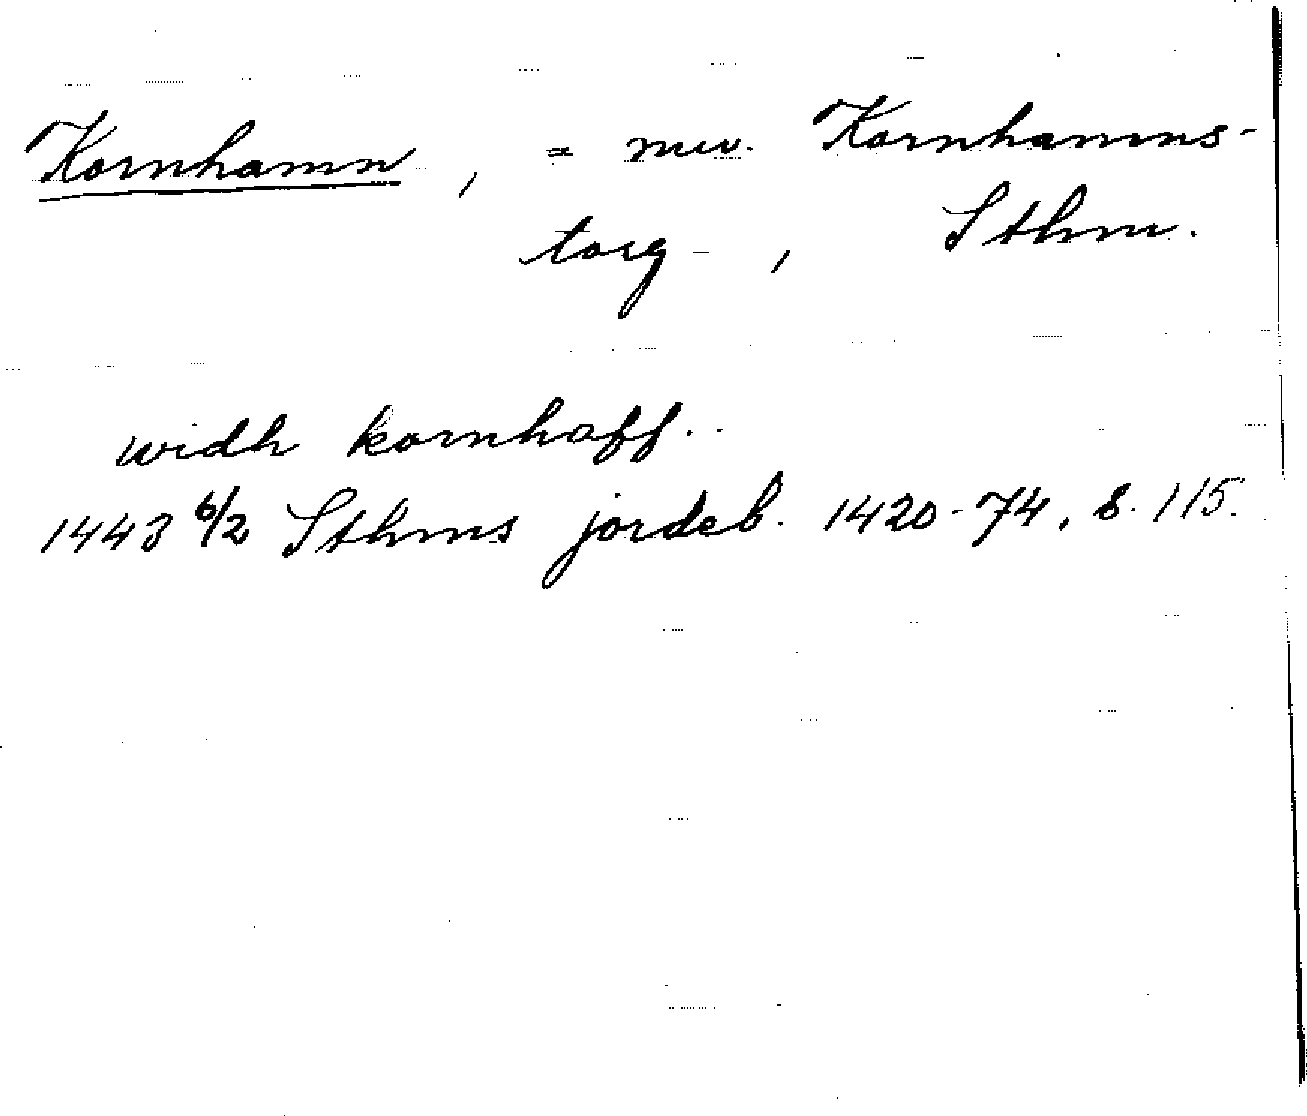 Kornhamn, = nuv. Kornhamns-
torg, Sthm.
widh kornhaff.
1443 6/2 Sthms jordeb. 1420-74, s. 115.